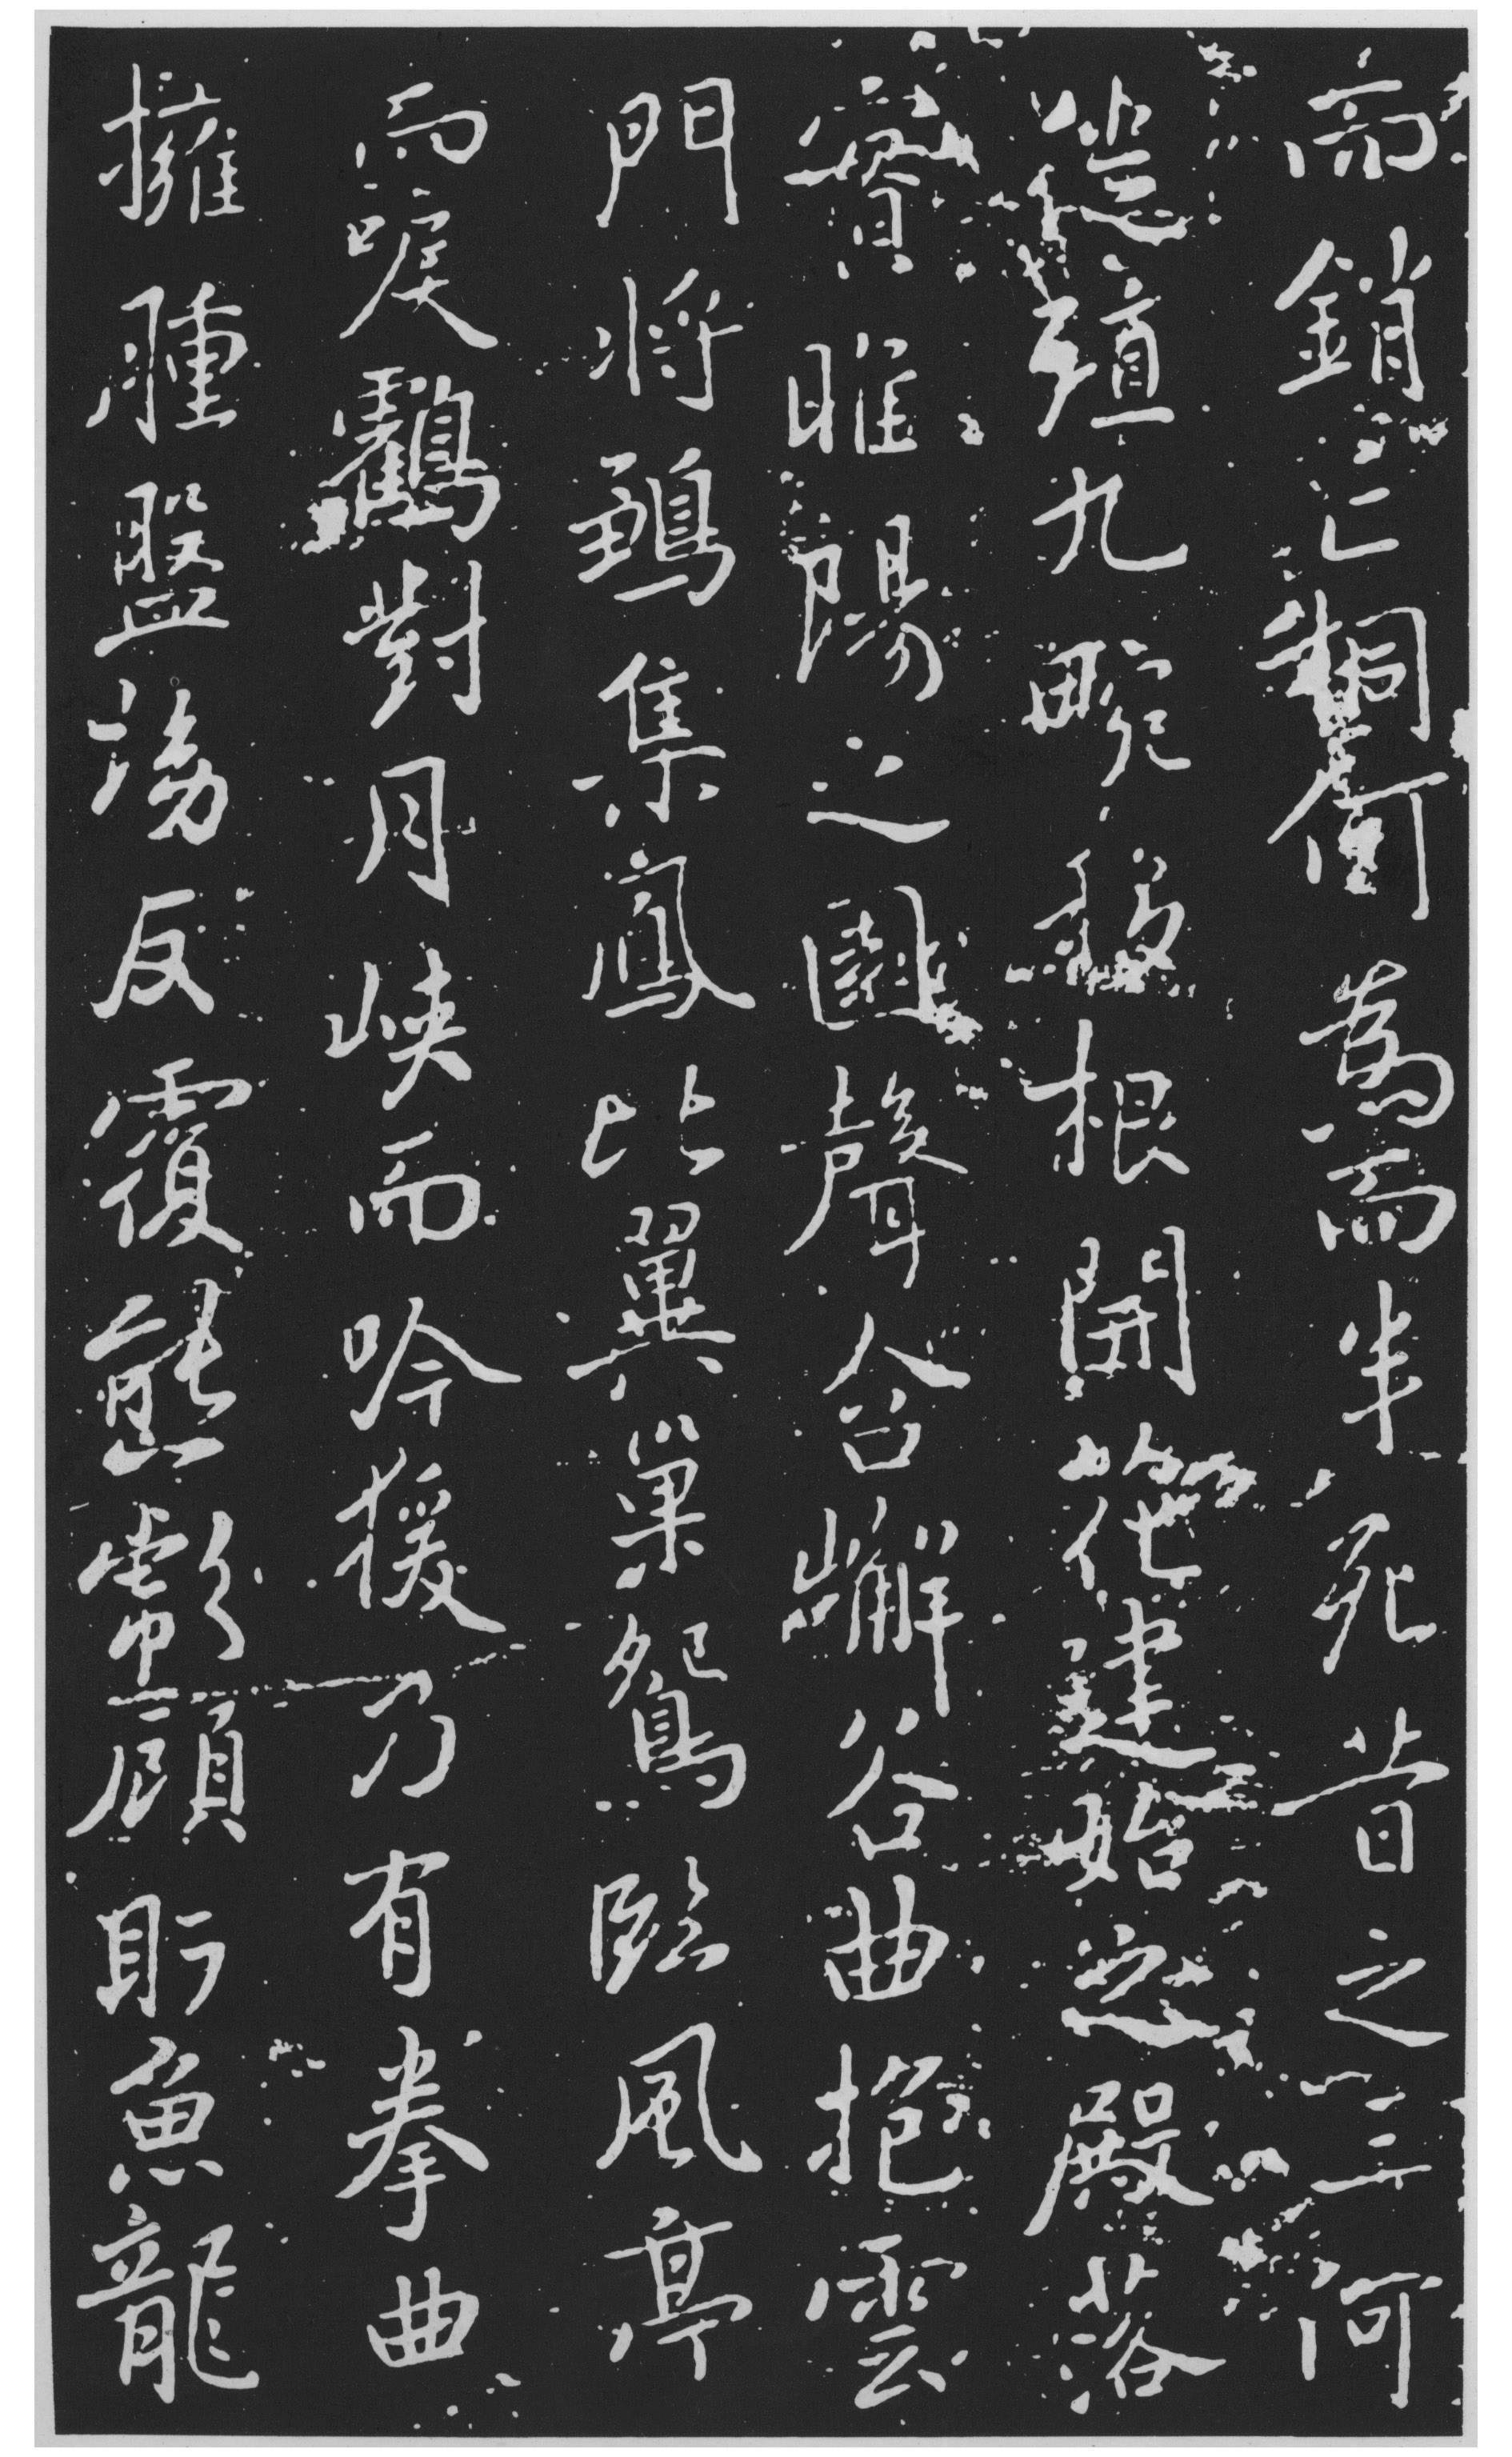 而銷亡桐何為而半死昔之三河
徙殖九畹移根開花建始之殿落
實睢陽之園聲含嶰谷曲抱雲
門将鵄集鳳比翼巢鴛臨風亭
而唳鸖對月峽而吟猨乃有拳曲
擁腫盤㘯反覆熊彪顧盻魚龍